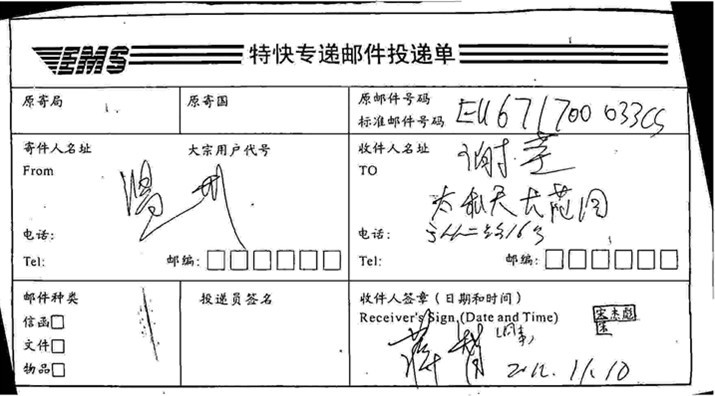 EMS 特快专递邮件投递单
原寄局
原寄国
原邮件号码
标准邮件号码
EU671700033CS
寄件人名址 大宗用户代号
From
温州
电话:
Tel: 邮编:
收件人名址
TO
电话:
Tel: 邮编:
邮件种类
信函
文件
物品
投递员签名
收件人签章(日期和时间)
Receiver's Sign (Date and Time)
2012.11.10